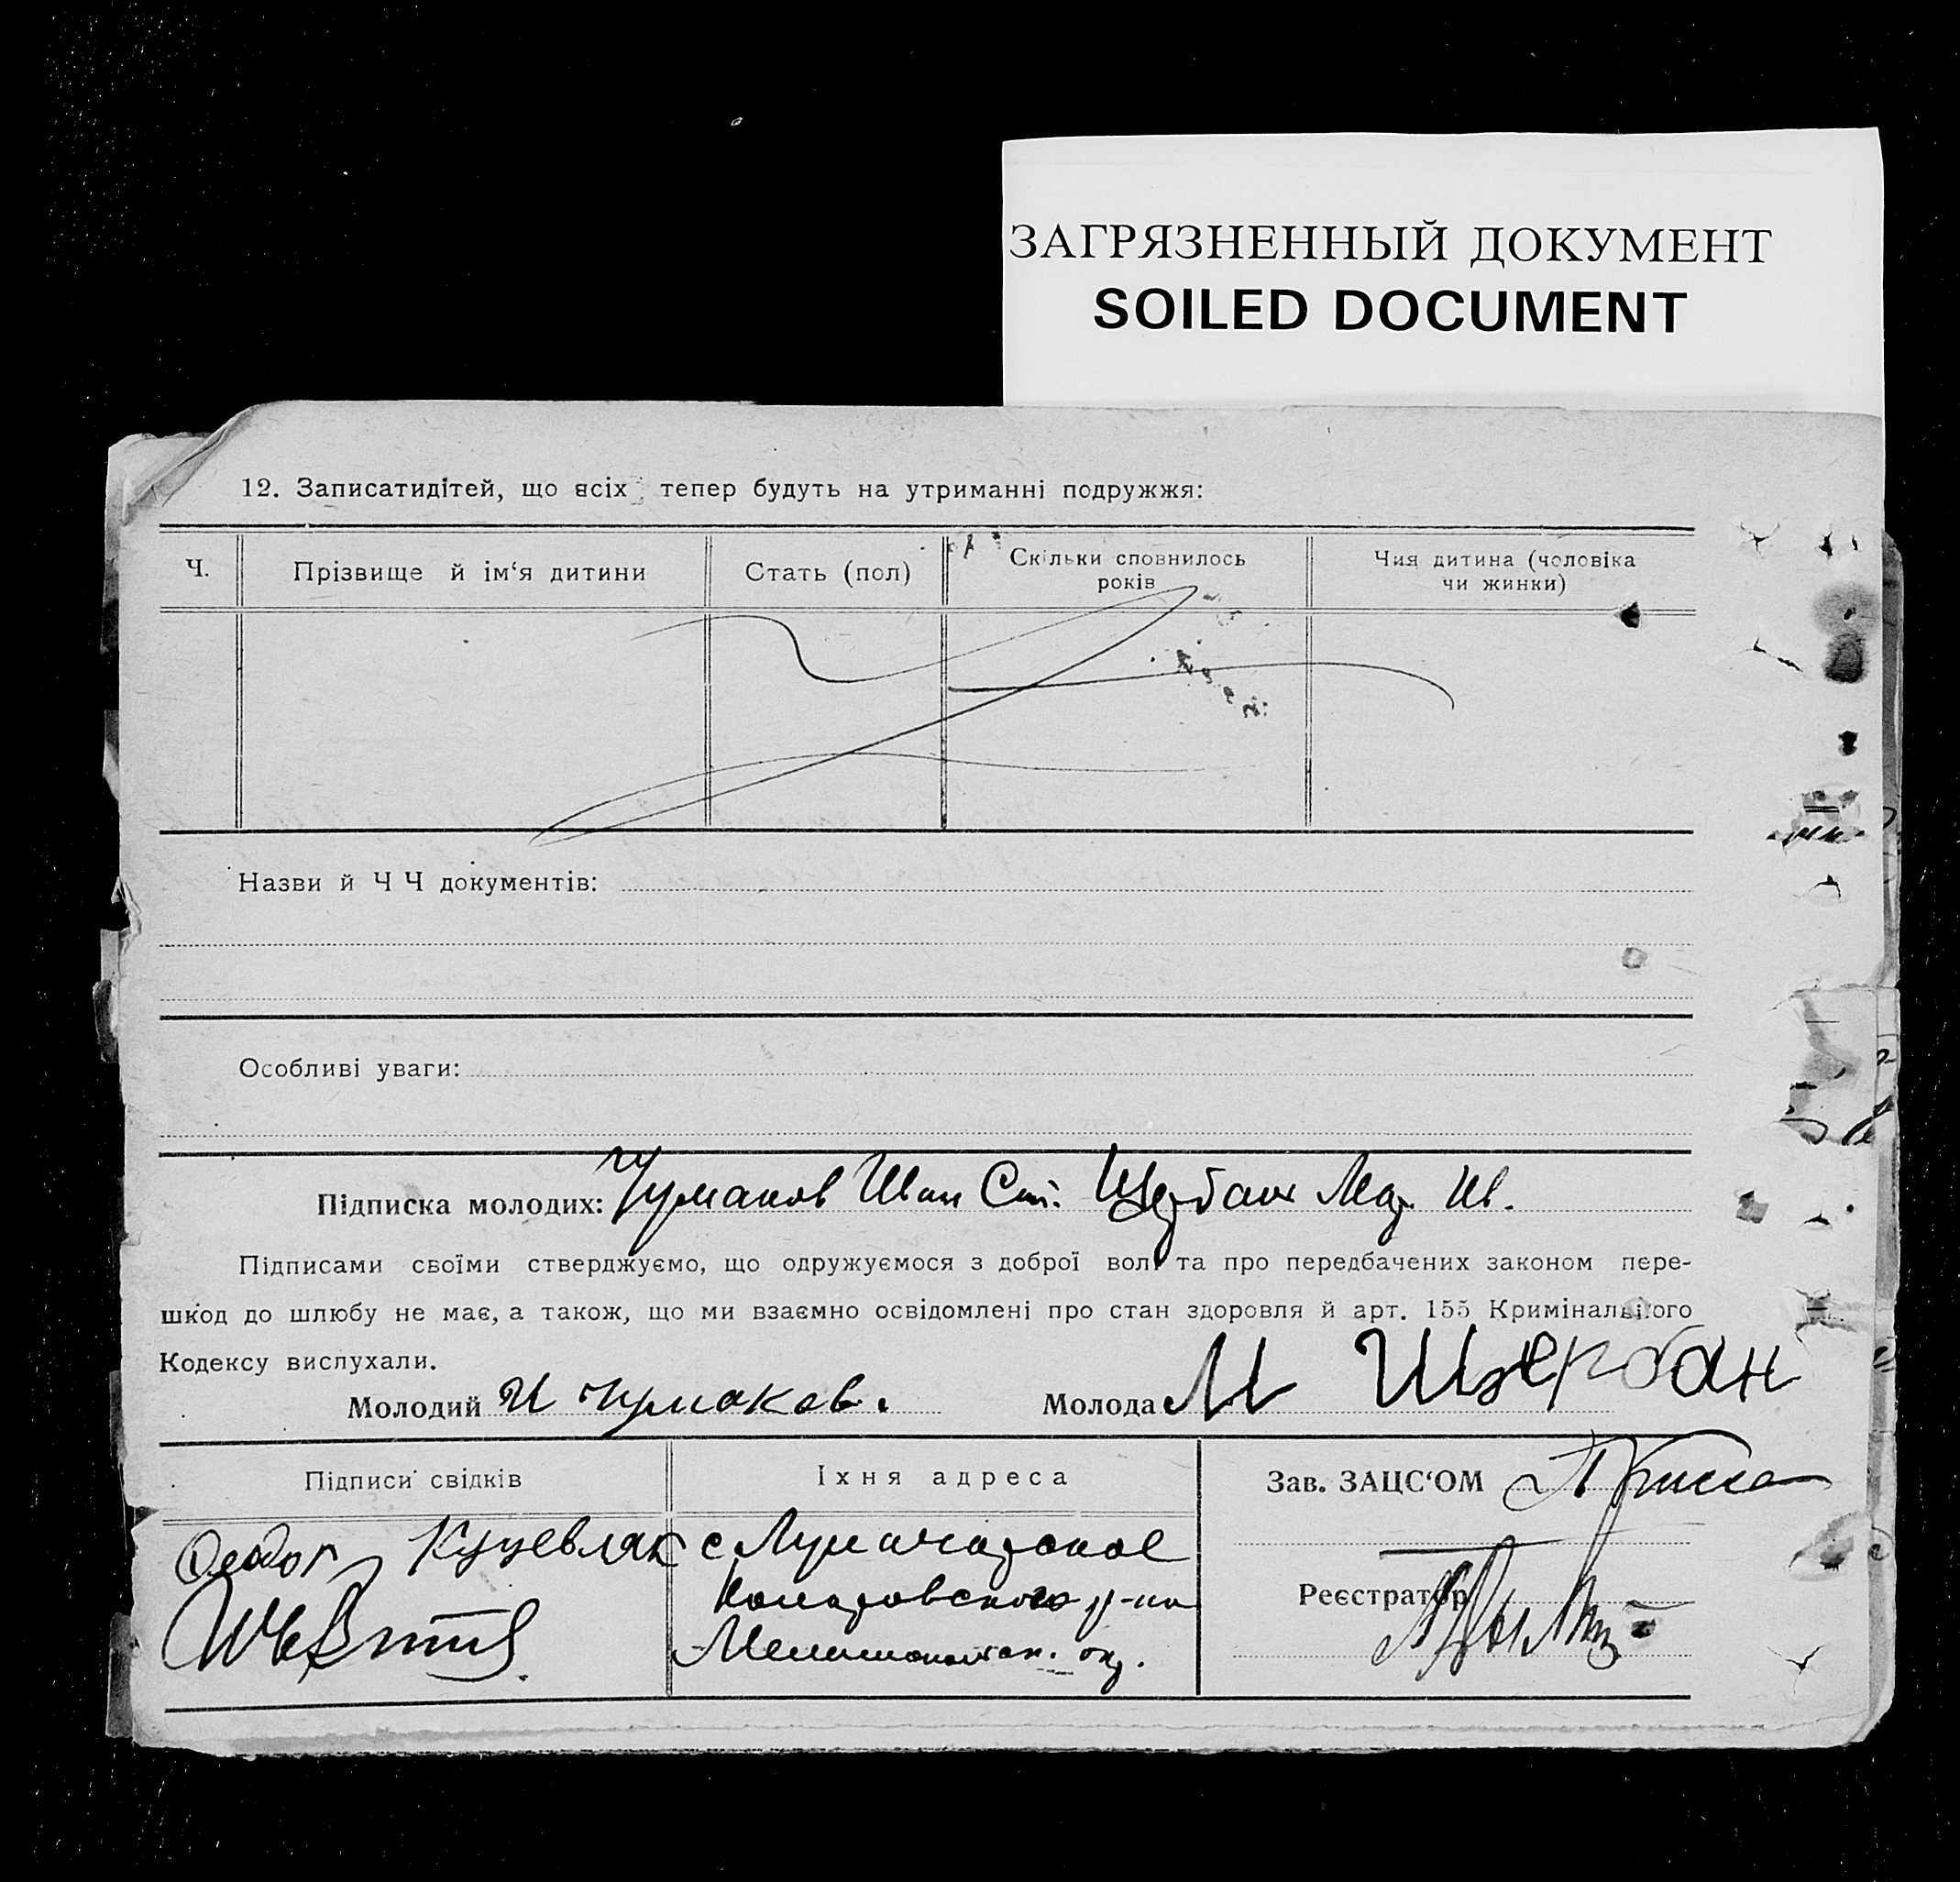 ЗАГРЯЗНЕННЫЙ ДОКУМЕНТ
SOILED DOCUMENT
12. Записатидітей, що всіх тепер будуть на утриманні подружжя:
Ч. Прізвище й ім‘я дитини Стать (пол) Скільки сповнилось років Чия дитина (чоловіка чи жинки)
Назви й Ч Ч документів:
Особливі уваги:
Підписка молодих: Чумаков Иван Ст. Щербан Мар. Ив.
Підписами своїми стверджуємо, що одружуємося з доброї волі та про передбачених законом пере-
шкод до шлюбу не має, а також, що ми взаємно освідомлені про стан здоровля й арт. 155 Кримінального
Кодексу вислухали.
Молодий И Чумаков. Молода М Щербан
Підписи свідків Їхня адреса Зав. ЗАЦС‘ОМ
с Луначарское
Реєстратор
р-на
Мелитопольск. окр.